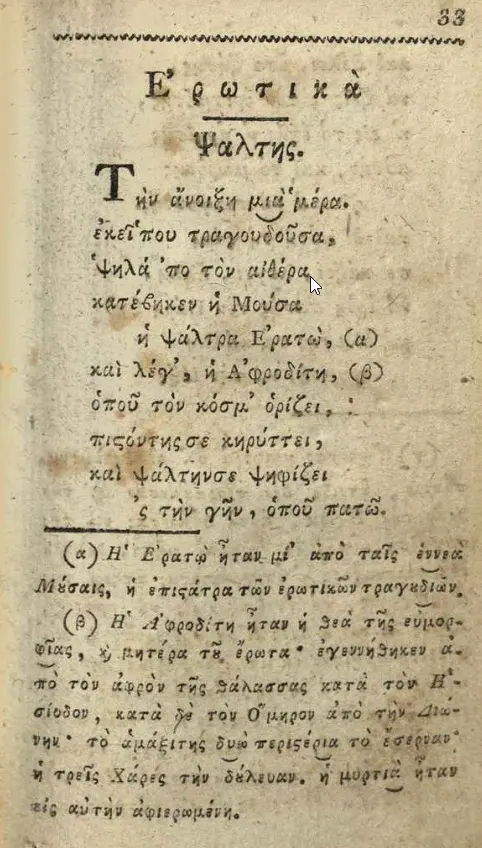 33
Ε᾿ρωτικὰ
Ψάλτης.
Τὴν ἄνοιξη μιὰ ̔μέρα.
ἐκεῖ ̓που τραγουδοῦσα,
̔ψηλά ̓πο τὸν αἰθέρα
κατέβηκεν ἡ Μούσα
ἡ ψάλτρα Ε᾿ρατὼ, (α)
καὶ λέγ', ἡ Α᾿φροδίτη, (β)
ὁποῦ τὸν κόσμ' ὁρίζει, :
πιϛόντης σε κηρύττει,
καὶ ψάλτηνσε ψηφίζει
̓ς τὴν γῆν, ὁποῦ πατῶ.
(α) Η῾ Ε᾿ρατὼ ἦταν μί' ἀπὸ ταῖς ἐννεὰ
Μȣ́σαις, ἡ ἐπιϛάτρα τῶν ἐρωτικῶν τραγȣδιῶν.
(β) Η῾ Α᾿φροδίτη ἦταν ἡ θεὰ τῆς ευμορ-
φῖας, ϗ μητέρα τȣ͂ ἔρωτα· ἐγεννήθηκεν ἀ-
πὸ τὸν ἀφρὸν τῆς θάλασσας κατὰ τὸν Η῾-
σίοδον, κατὰ δὲ τὸν Ο῞μηρον ἀπὸ τὴν Διώ-
νην· τὸ ἁμάξιτης δυὼ περιϛέρια τὸ ἔσερναν·
ἡ τρεῖς Χάρες τὴν δȣ́λευαν. ἡ μυρτιὰ ἦταν
εἰς αὐτὴν ἀφιερωμένη.